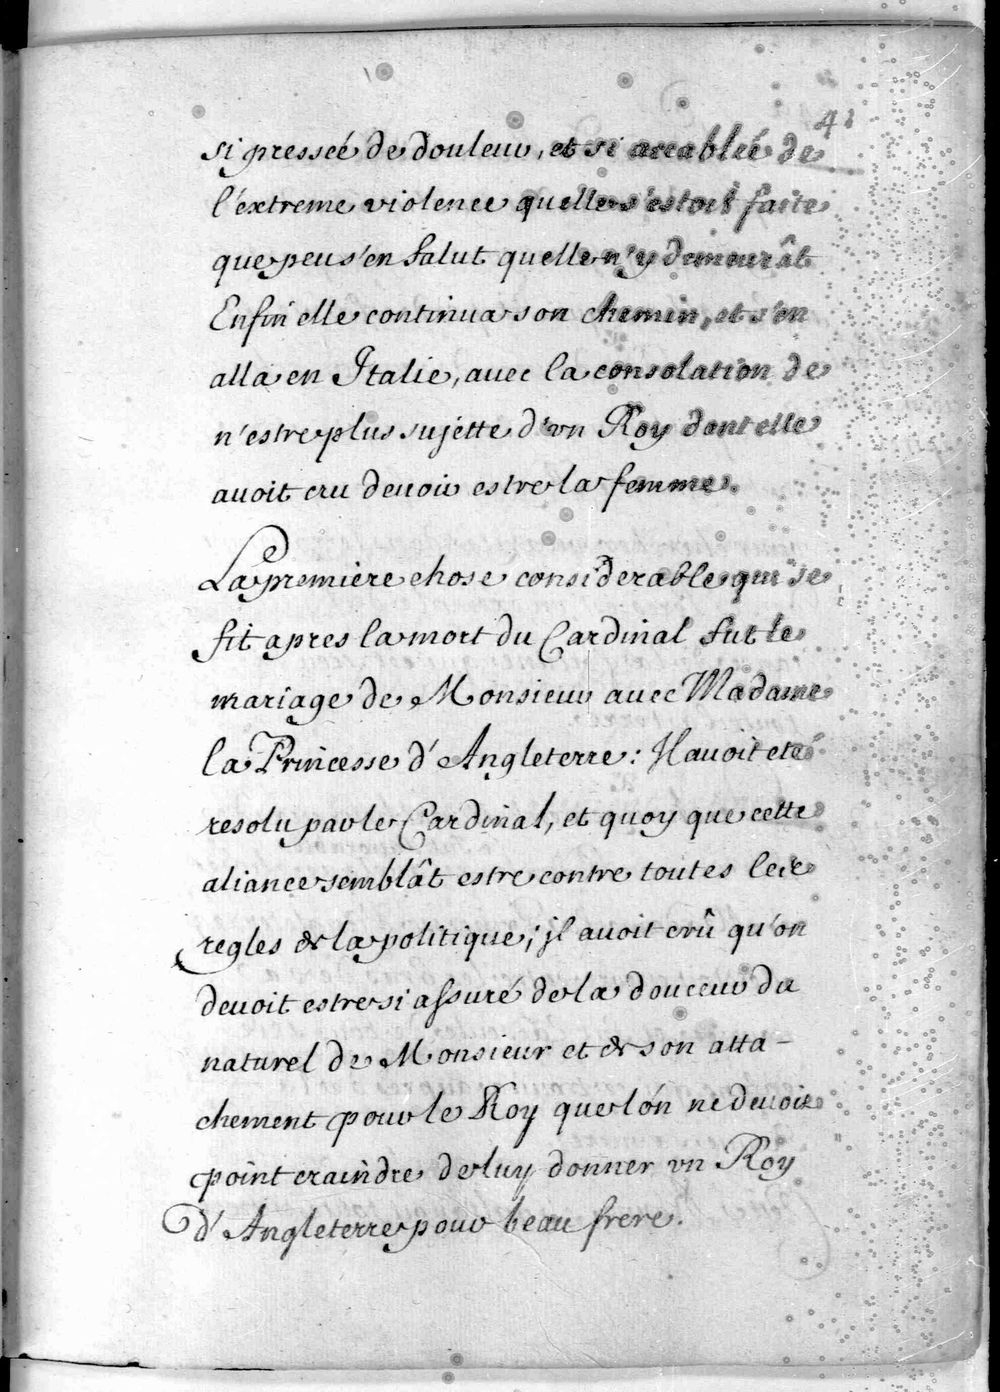 41
si presseé de douleur, et si accableé de
l'extreme violence quelle s'estoit faite
que peu s'en falut quelle n'y demeurât
Enfin elle continua son chemin, et s'en
alla en Italie, avec la consolation de
n'estre plus sujette d'un Roy dont elle
avoit cru devoir estre la femme.
La premiere chose considerable qui se
fit apres la mort du Cardinal fut le
mariage de Monsieur avec Madame
la Princesse d'Angleterre: Il avoit eté
resolu par le Cardinal, et quoy que cette
aliance semblât estre contre toutes les
regles de la politique; jl avoit crû qu'on
devoit estre si assuré de la douceur du
naturel de Monsieur et de son atta-
chement pour le Roy que lón ne devoit
point craindre de luy donner un Roy
d'Angleterre pour beau frere.